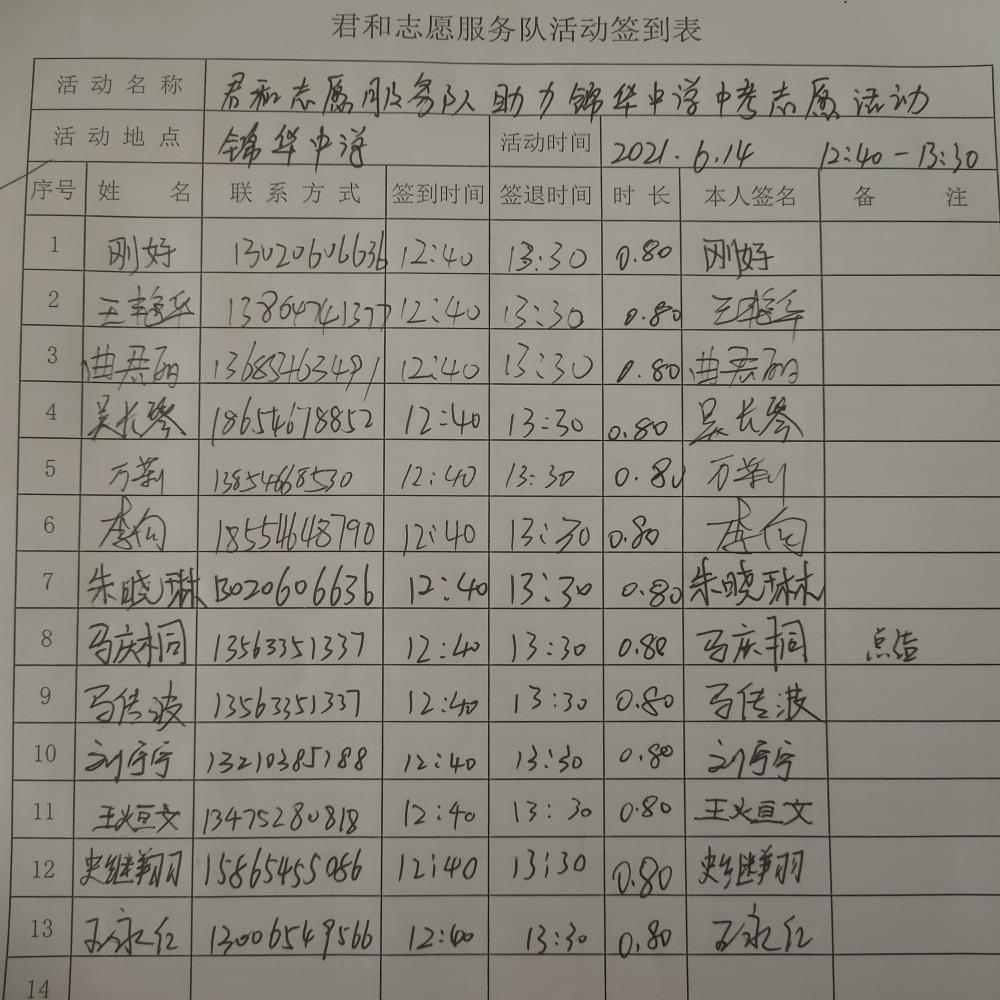 君和志愿服务队活动签到表
活动名称 君和志愿服务队助力锦华中学中考志愿活动
活动地点 锦华中学 活动时间 2021.6.14 12:40-13:30
序号 姓名 联系方式 签到时间 签退时间 时长 本人签名 备注
1 刚好 13020606636 12:40 13:30 0.80 刚好
2 王艳华 13864741377 12:40 13:30 0.80 王艳华
3 曲君丽 13685463491 12:40 13:30 0.80 曲君丽
4 吴长琴 18654678852 12:40 13:30 0.80 吴长琴
5 万菊 13854668530 12:40 13:30 0.80 万菊
6 李向 18554648790 12:40 13:30 0.80 李向
7 朱晓琳 13020606636 12:40 13:30 0.80 朱晓琳
8 马庆桐 13563351337 12:40 13:30 0.80 马庆桐
9 马传波 13563351337 12:40 13:30 0.80 马传波
10 刘宁宁 13210385188 12:40 13:30 0.80 刘宁宁
11 王烜文 13475280818 12:40 13:30 0.80 王烜文
12 史继翔 15865455086 12:40 13:30 0.80 史继翔
13 王永红 13006549566 12:40 13:30 0.80 王永红
14